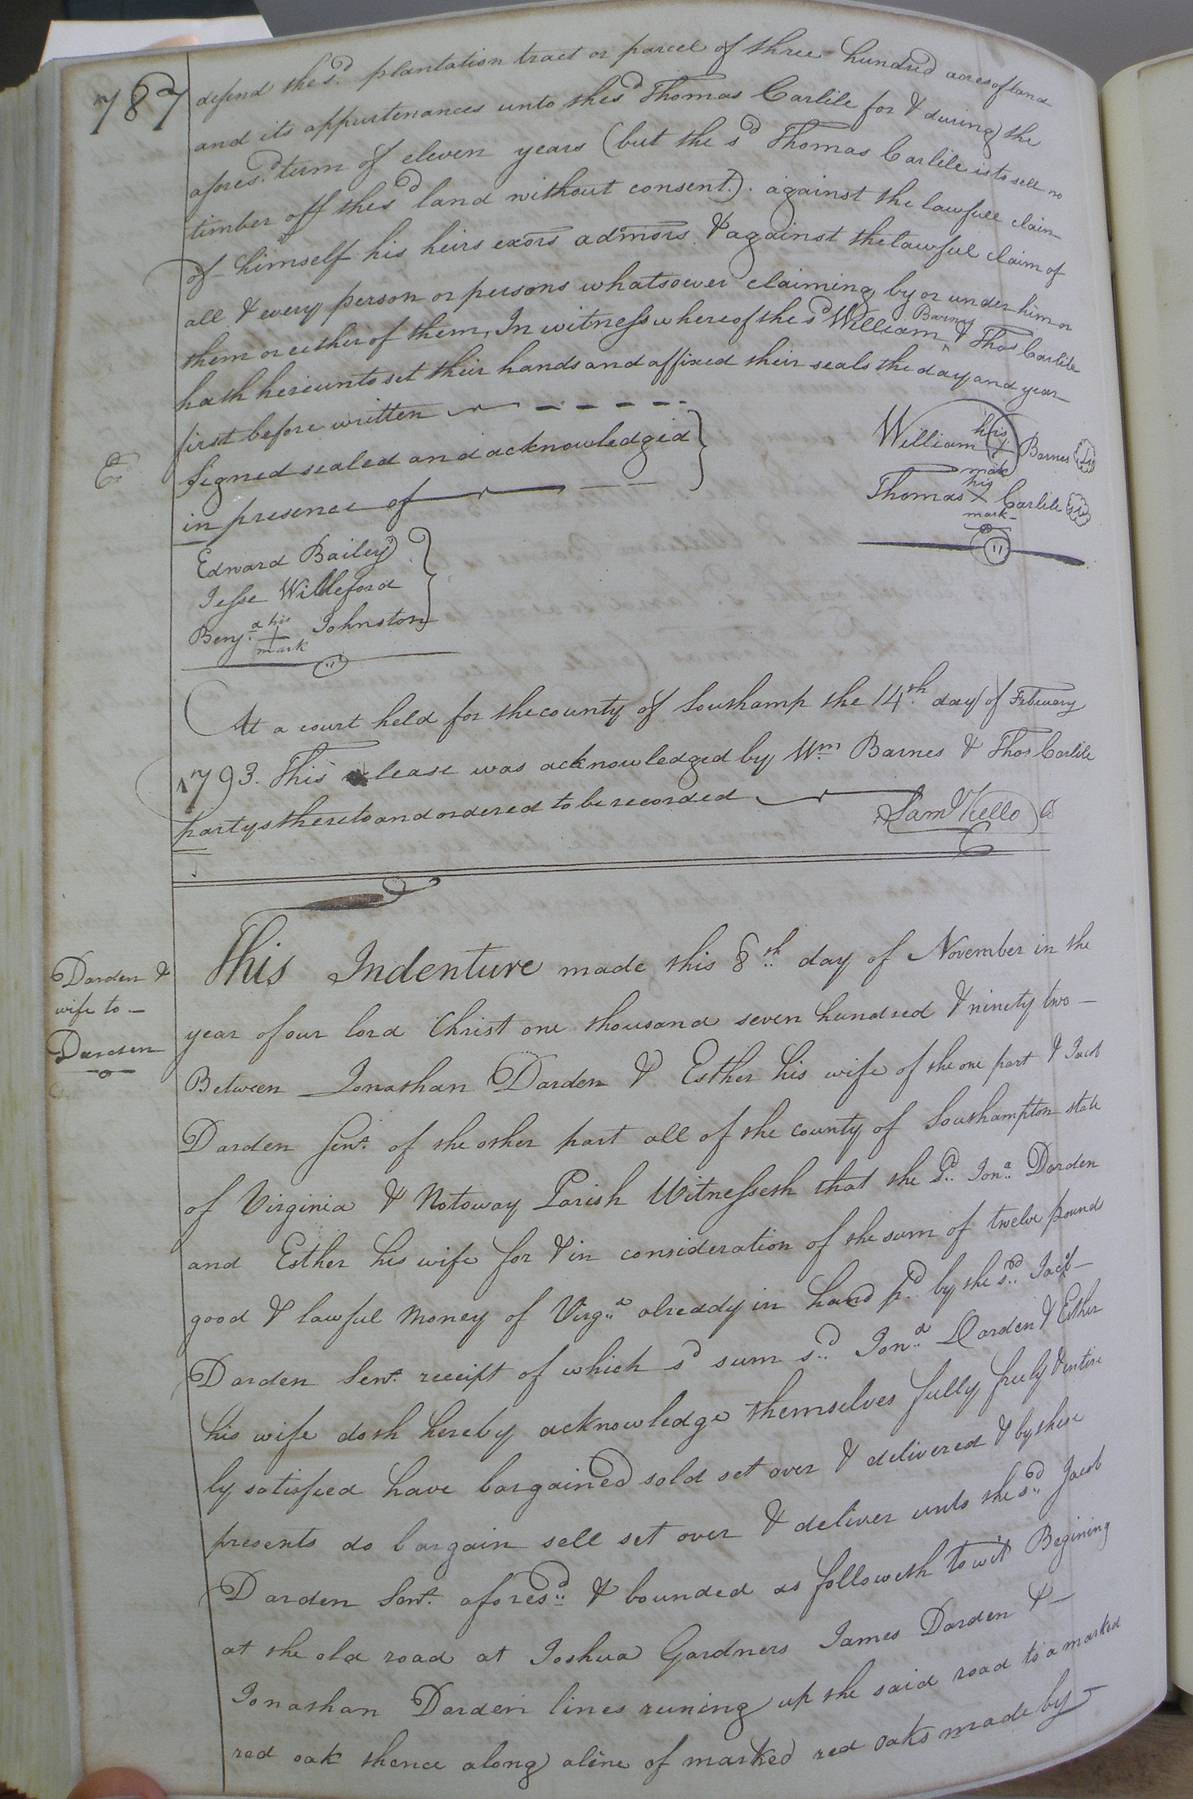 787
defend the sd. plantation tract or parcel of three hundred acres of land
and its appurtenances unto the sd Thomas Carlile for & during the
aforesd. term of eleven years (but the sd Thomas Carlile is to sell no
timber off the sd land without consent.) against the lawfull claim
of himself his heirs exors admors & against the lawful claim of
all & every person or persons whatsoever claiming by or under him or
them or either of them, In witness whereof the sd William Barnes & Thos Carlile
hath hereunto set their hands and affixed their seals the day and year
first before written
Signed sealed and acknowledged
in presence of
William his mark Barnes
Thomas his X mark Carlile
Edward Bailey
Jesse Willeford
Benja. his + mark Johnston
At a court held for the county of Southamp the 14th. day of February
1793. This lease was acknowledged by Wm. Barnes & Thos Carlile
partys thereto and ordered to be recorded
Saml Kello C
Darden &
wife to
Darden
This Indenture made this 8th day of November in the
year of our lord Christ one thousand seven hundred & ninety two
Between Jonathan Darden & Esther his wife of the one part & Jacob
Darden Senr. of the other part all of the county of Southampton state
of Virginia & Notoway Parish Witnesseth that the Sd. Jona. Darden
and Esther his wife for & in consideration of the sum of twelve pound
good & lawful money of Virga. already in hand pd. by the sd. Jacob
Darden Senr. receipt of which sd sum sd. Jona. Darden & Esther
his wife doth hereby acknowledge themselves fully freely & entire
ly satisfied have bargained sold set over & delivered & by these
presents do bargain sell set over & deliver unto the sd. Jacob
Darden Senr. aforesd. & bounded as followeth to wit Begining
at the old road at Joshua Gardners James Darden &
Jonathan Darden lines runing up the said road to a marked
red oak thence along a line of marked red oaks made by